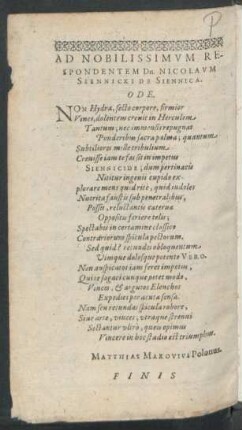 AD NOBILISSIMVM RE-
SPONDENTEM Dn. NICOLAVM
SIENNICKI DE SIENNICA.
ODE.
NON Hydra, secto corpore, firmior
Vinci dolentem crevit in Herculem
Tantum; nec immensis repugnat
Ponderibus sacra palma; quantum
Subtiliores mille tribulium
Crevisse iam te facit in impetus
SIENNICIDE; dum pertinacis
Nititur ingenii cupido ex-
plorare mens quid rite, quid subtiles
Nutrita faustis sub penetralibus,
Possit, reluctantis caterva
Oppositu ferire telis;
Spectabis in certamine classico
Contrariorum spicula pectorum,
Sed quid? recundis obloquentum
Vimque dolosque potente VERO.
Non auspicatos iam feret impetus,
Quite sagaci cunque petet modo,
Vinces, & argutos Elenchos
Expedies per acuta sensa.
Nam seu recundas spicula robore,
Sive arte, vinces, utraque strenui
Sectantur ultro, queis opimus
Vincere in hoc studio est triumphus.
MATTHIAS MAROVIUS Polonus.
FINIS